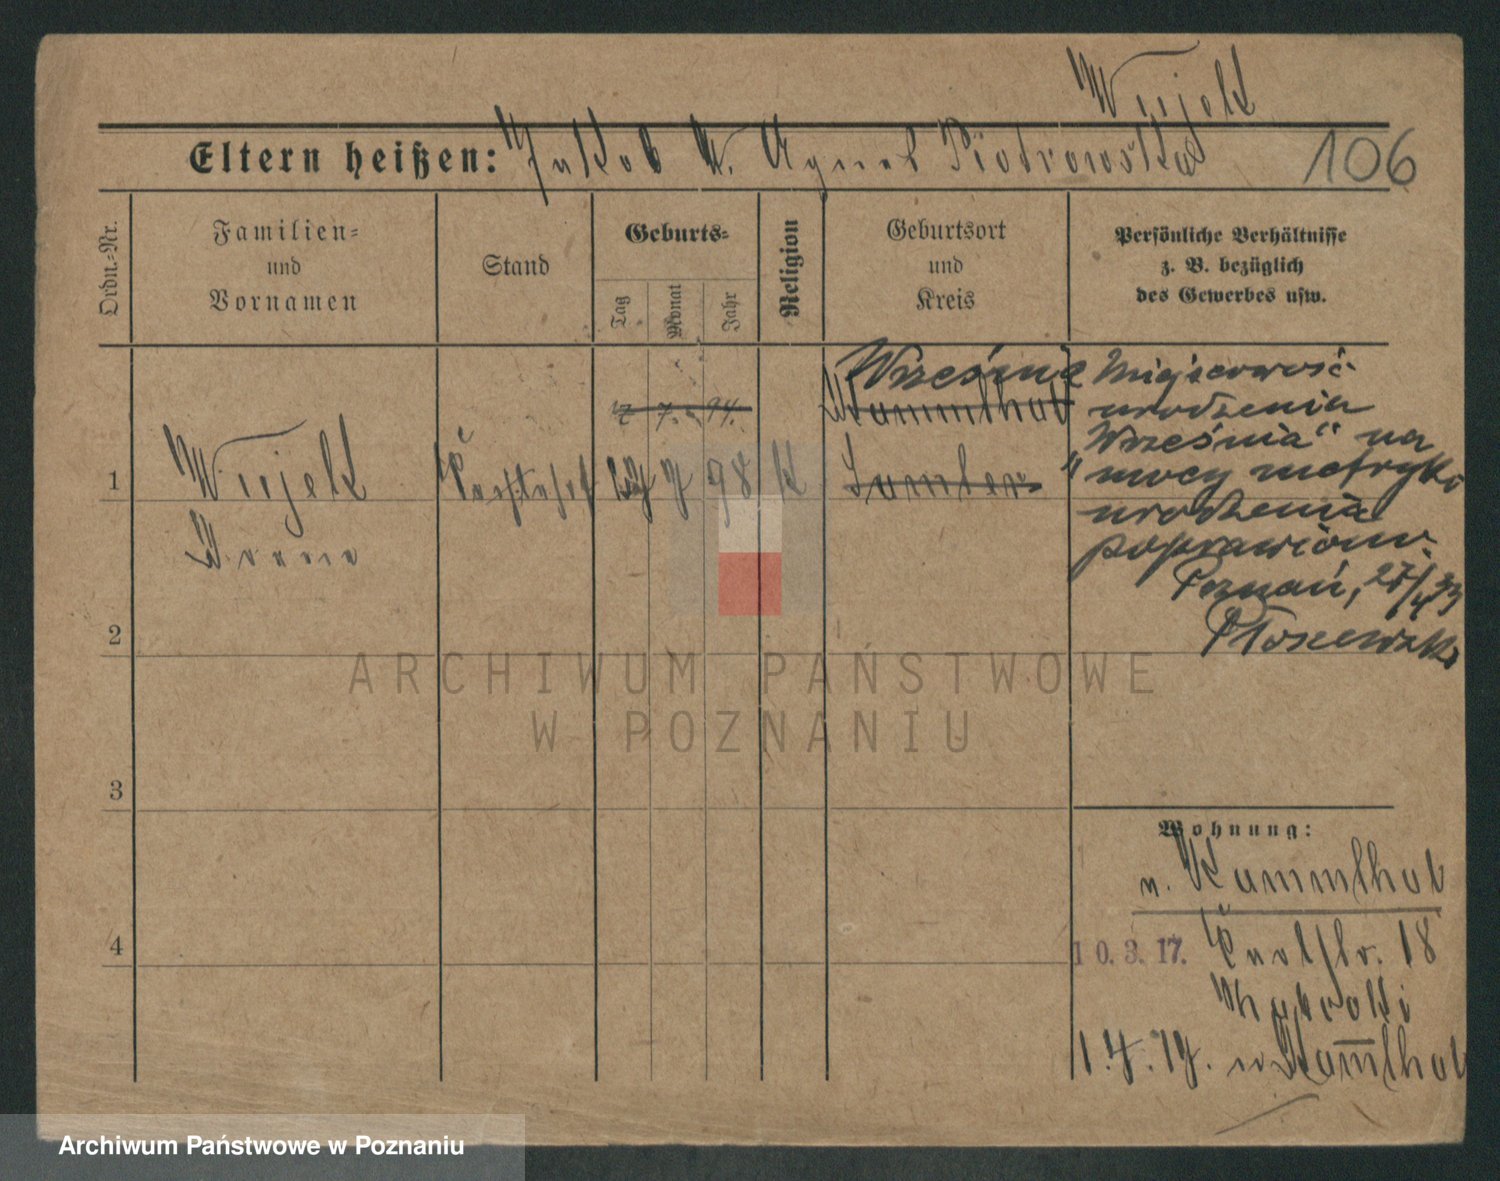 Wujek
Eltern heißen: Jakob u. Agnes Piotrowska
106
Ordn.-Nr.
Familien-
und
Vornamen
Stand
Geburts-
Tag
Monat
Jahr
Religion
Geburtsort
und
Kreis
Persönliche Verhältnisse
z. B. bezüglich
des Gewerbes usw.
7. 94.
Września
Kammthal
Miejscowość
urodzenia
"Września" na
mocy metryki
urodzenia
poprawiono.
Poznań, 27/4 33
1
Wujek
7 98
K
Samter
2
3
4
Wohnung:
n. Kammthal
10. 3. 17.
18
1. 4. 19. n
ARCHIWUM PAŃSTWOWE
W POZNANIU
Archiwum Państwowe w Poznaniu